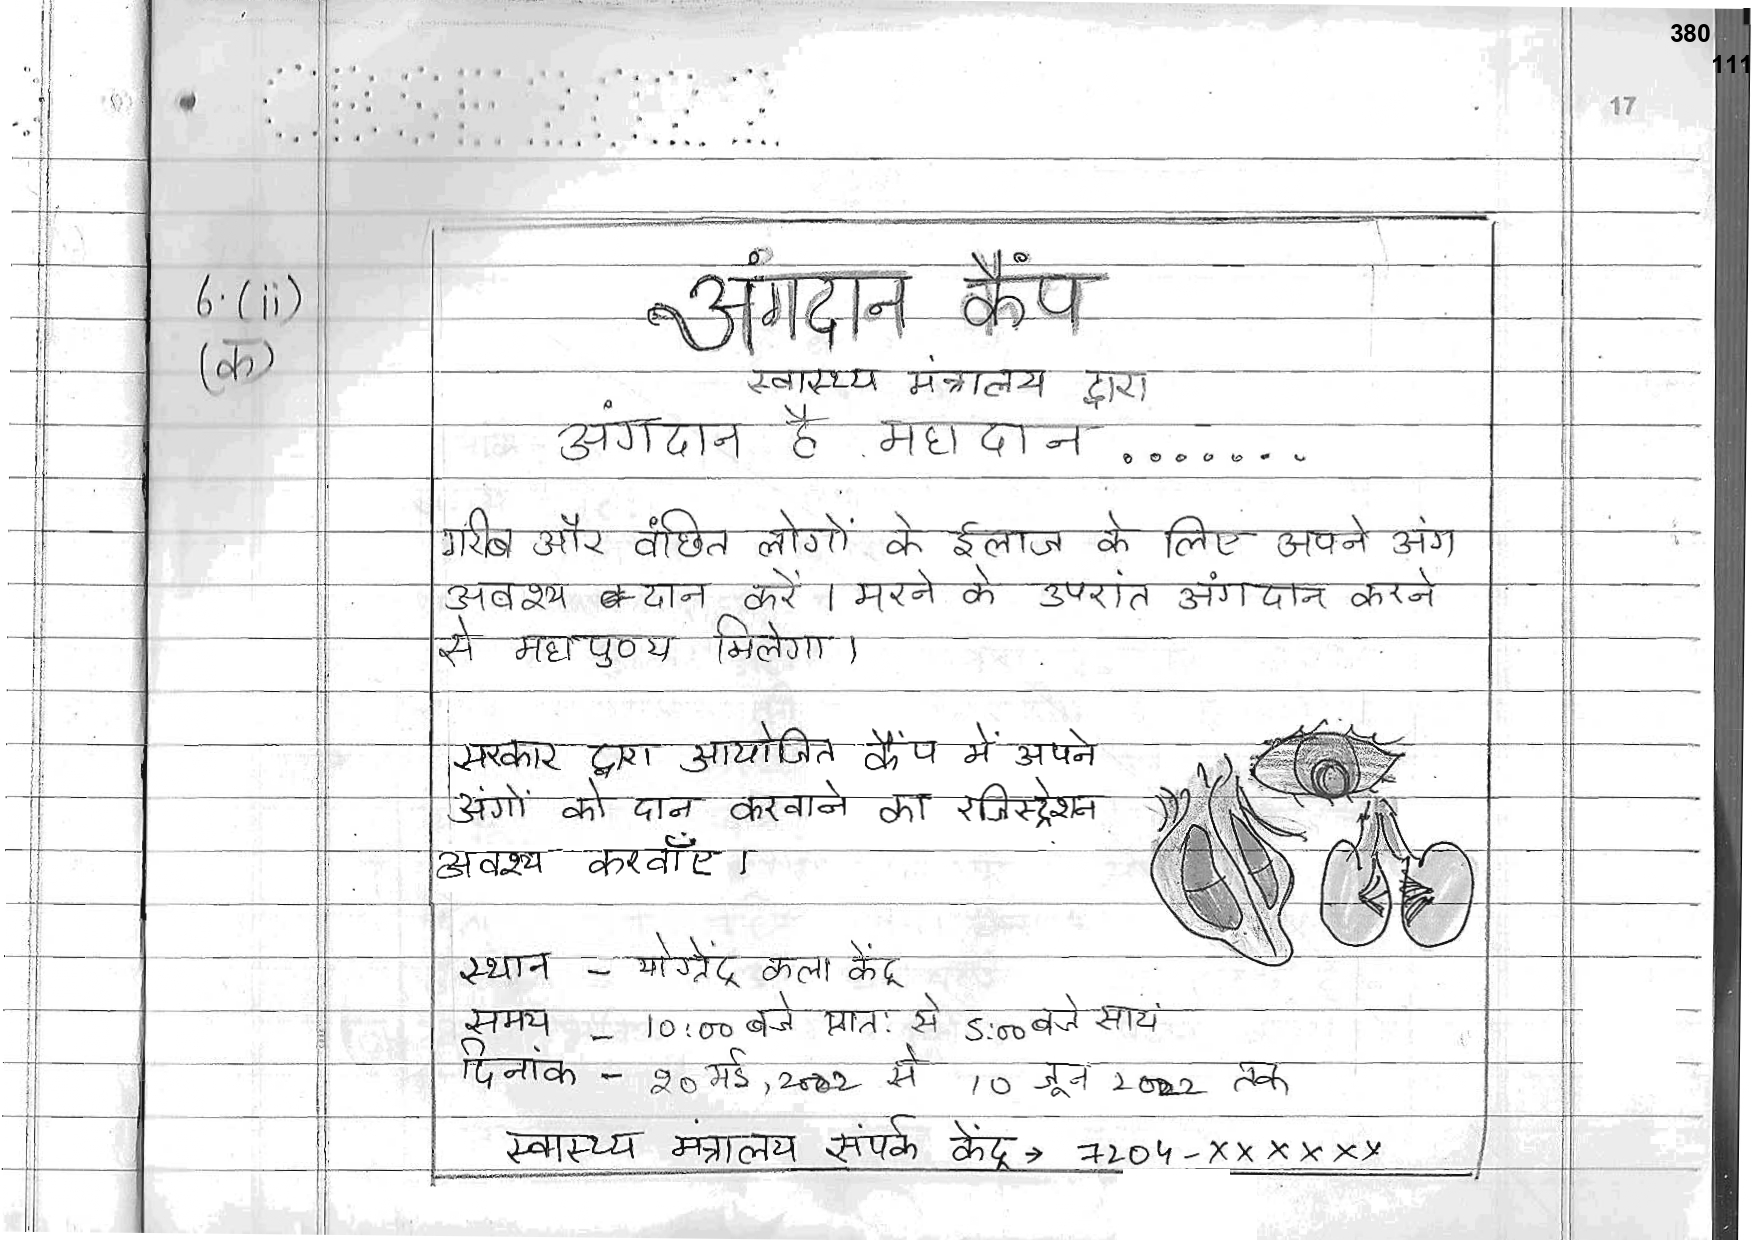 380
111
17
CBSE 2022
6.(ii)
(क)
अंगदान कैंप
स्वास्थ्य मंत्रालय द्वारा
अंगदान है महादान .......
गरीब और वंछित लोगों के ईलाज के लिए अपने अंग
अवश्य दान करें। मरने के उपरांत अंगदान करने
से महापुण्य मिलेगा।
सरकार द्वारा आयोजित कैंप में अपने
अंगों को दान करवाने का रजिस्ट्रेशन
अवश्य करवाँए।
स्थान – कला केंद्र
समय – 10:00 बजे प्रातः से 5:00 बजे सायं
दिनांक – २० मई, 2022 से 10 जून 2022 तक
स्वास्थ्य मंत्रालय संपर्क केंद्र → 7204-××××××